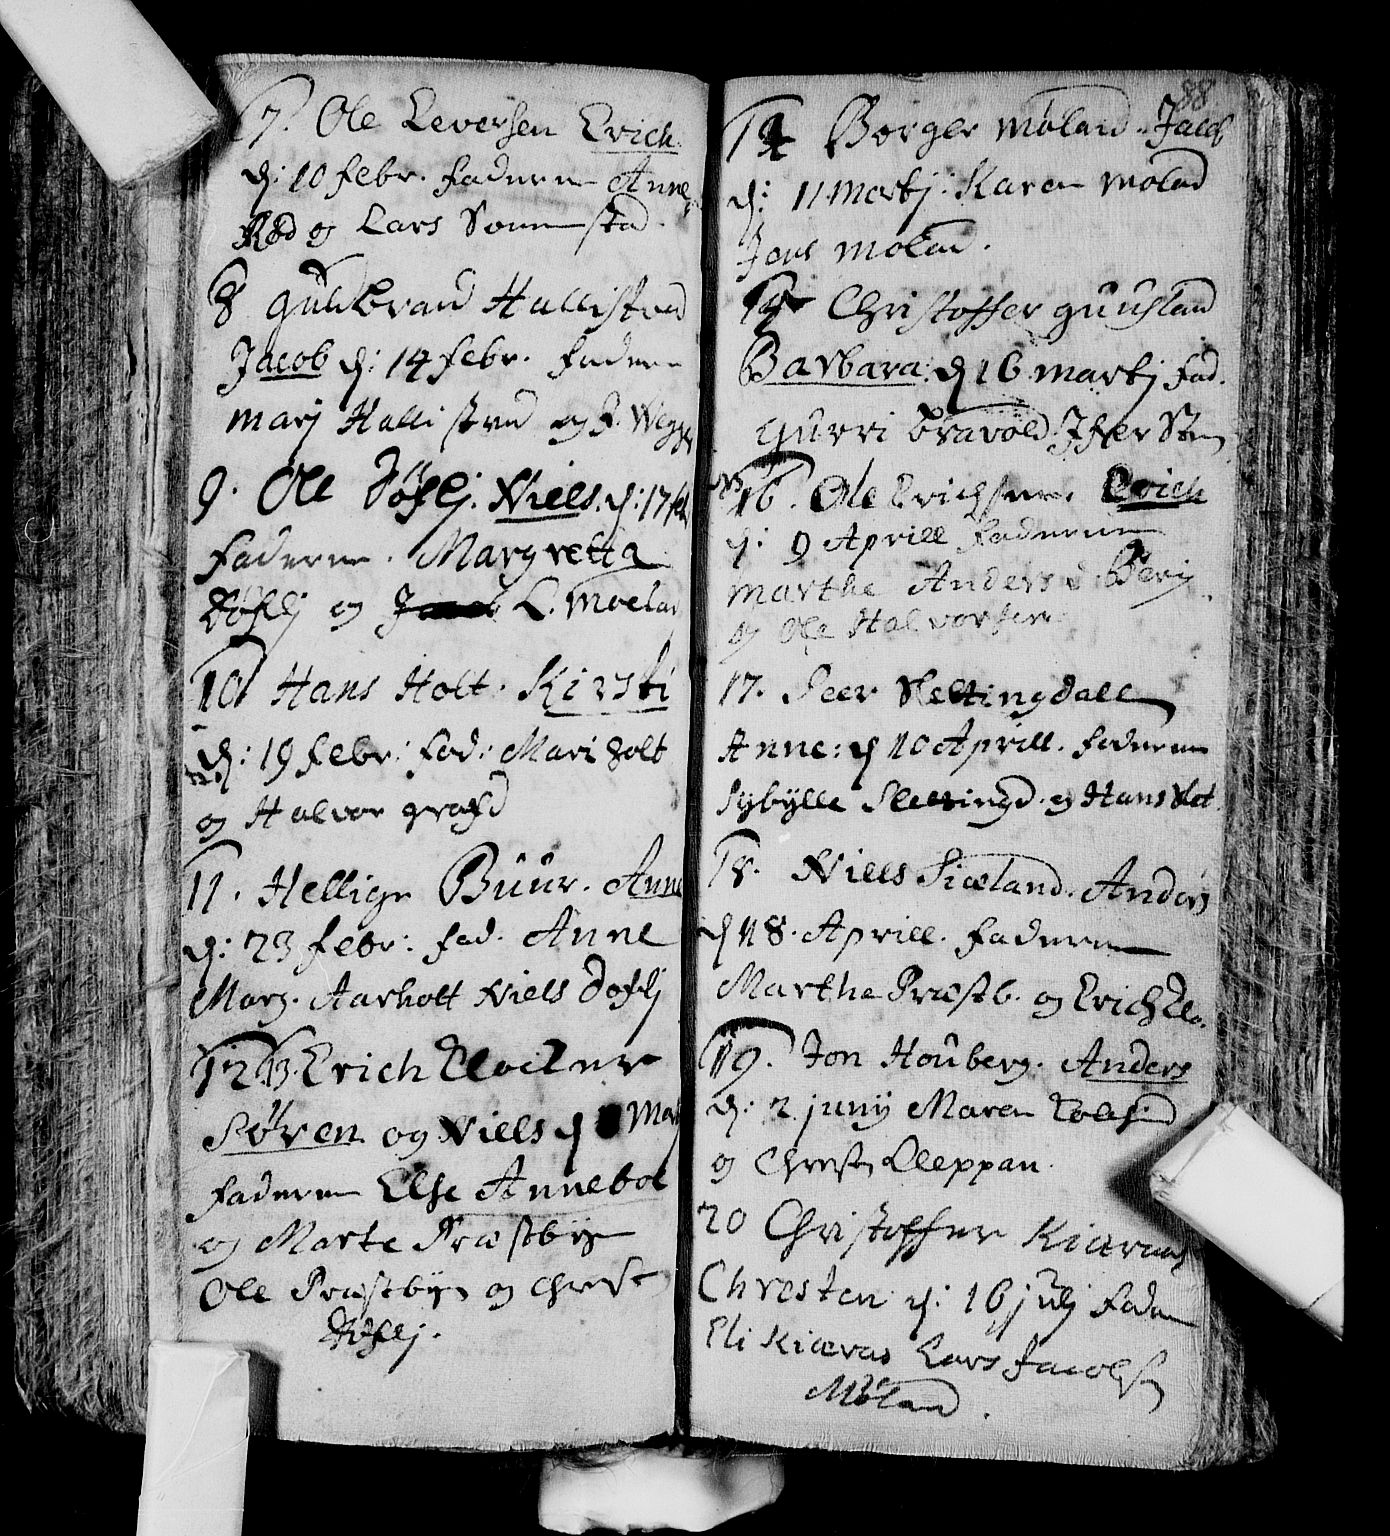 7. Ole Leversen Erich.
d: 10 febr. Faderne Anne
Rød og Lars Sonnstad.
8 Guldbrand Hallistved
Jacob d: 14 febr. Faderne
Marj Hallistved og J. Wegger
9. Ole Døflj. Niels. d: 17 feb
Faderne. Margretta
Døflj og L. Moeland
10 Hans Holt. Kirsti
d: 19 febr: Fad: Mari Holt
og Halvor
11. Hellige Buur. Anne
d: 23 febr: Fad. Anne
Marg. Aarholt Niels Doflj
12 13. Erich Clocker
Søren og Niels d Martj
Faderne Else Annebol
og Marte Præstbye
Ole Præstbye og Christ
Døflj.
88
14 Borger Møland. Jacob
d: 11 Martj. Karen Molad
Jens Molad.
15 Christoffer Guusland
Barbara: d 16 martj Fad.
Gurri Bravold. Ifver
16. Ole Erichsen. Erich
d: 9 Aprill Faderne
Marthe Anders Berg
og Ole Halvorsen
17. Peer Slettingdall
Anne: d 10 Aprill. Faderne
Sybylle Slettingd. og Hans Slet
18. Niels Siæland. Anders
d 18. Aprill. Faderne
Marthe Præstb. og Erich Clo.
19. Jon Houberg. Anders
d: 2 junij Maren
og Christ Kleppan.
20 Christoffer Kiæraas
Christen d: 16 julj Fadne
Eli Kiæraas Lars Jacobs
Møland.